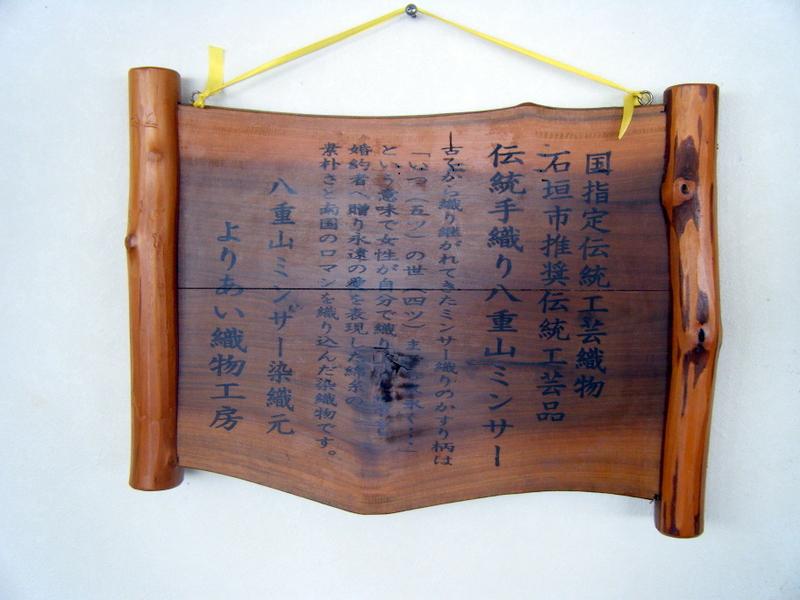 国指定伝統工芸織物
石垣市推奨伝統工芸品
伝統手織り八重山ミンサー
古くから織り継がれてきたミンサー織りのかすり柄は
「いつ（五ツ）の世（四ツ）　末永く…」
という意味で女性が自分で織り
婚約者へ贈り永遠の愛を表現した綿糸の
素朴さと南国のロマンを織り込んだ染織物です。
八重山ミンサー染織元
よりあい織物工房